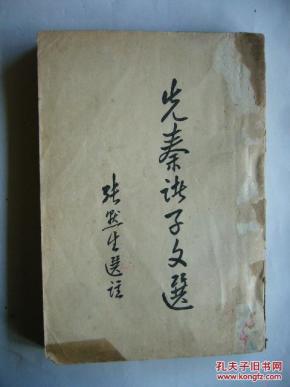 先秦诸子文選
張默生選註
孔夫子旧书网
KONGFZ.COM